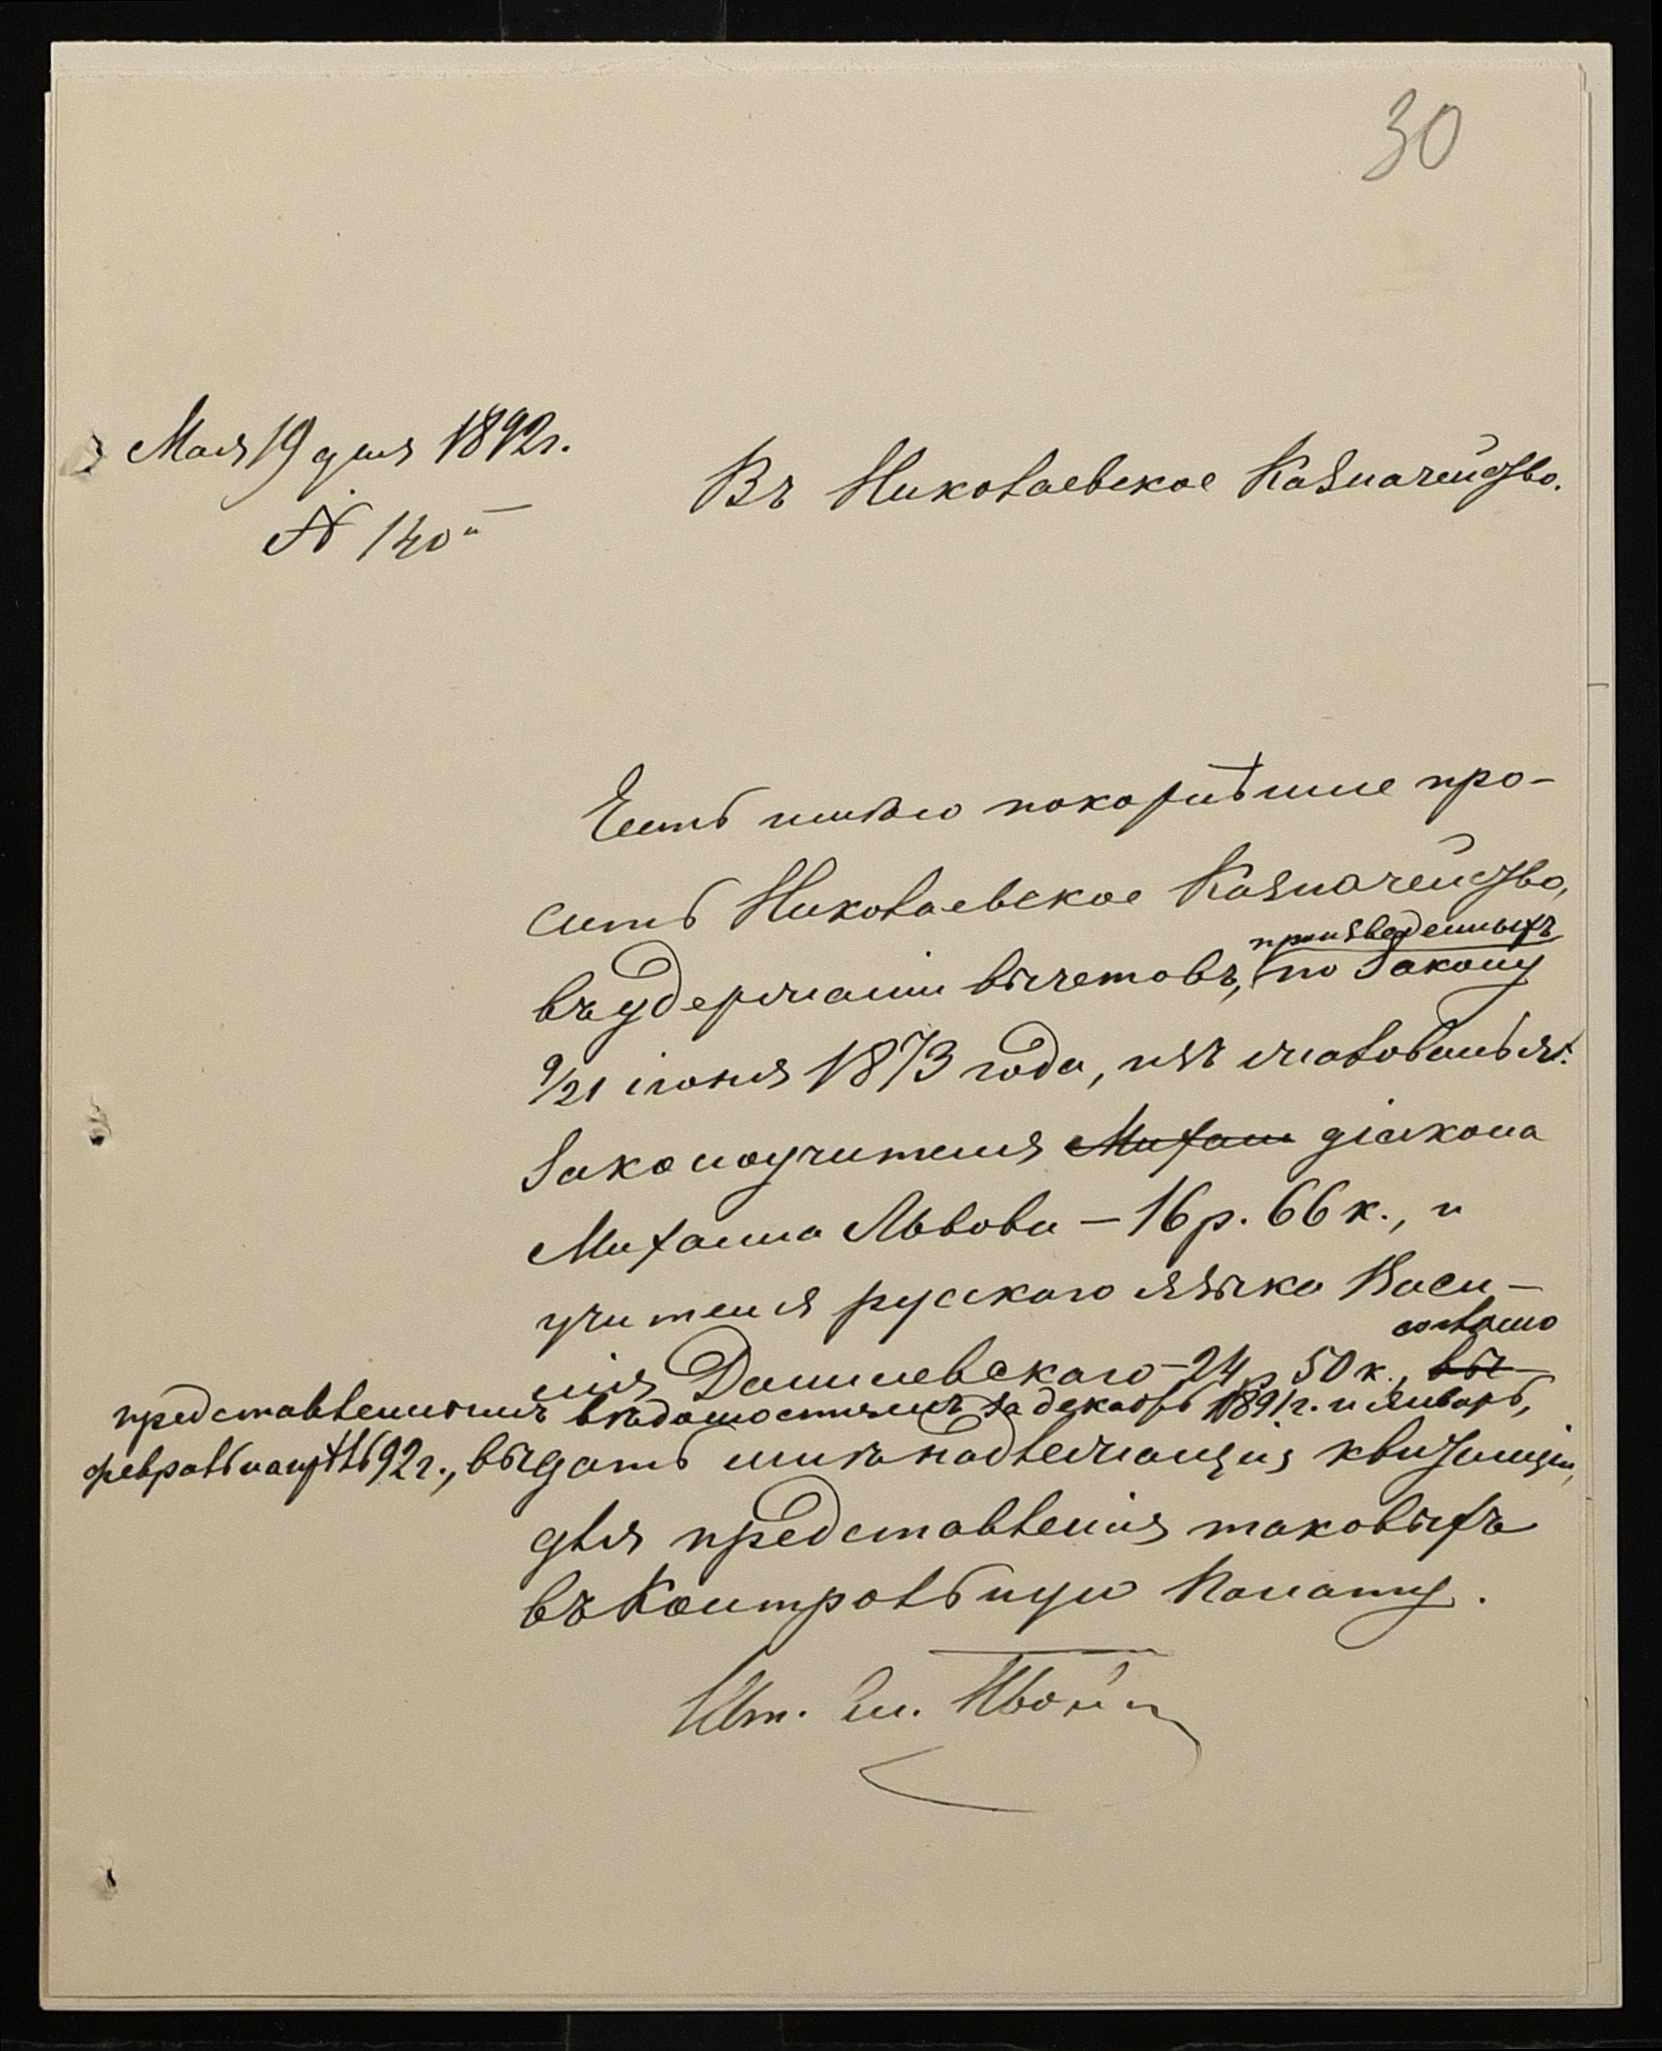 30
Мая 19 дня 1892 г.
№ 140
Въ Николаевское Казначейство.
Честь имѣю покорнѣйше про-
сить Николаевское Казначейство,
произведенныхъ
въ удержаніи вычетовъ, по Закону
9/21 іюня 1873 года, изъ жалованья:
Законоучителя Михаи діакона
Михаила Львова – 16 р. 66 к., и
учителя русскаго языка Васи-
согласно
лія Данилевскаго – 24 р 50 к., вы
представленнымъ вѣдомостямъ за декабрь 1891 г. и январь,
февраль и апрѣль 92 г., выдать мнѣ надлежащія квитанціи,
для представленія таковыхъ
въ Контрольную Палату.